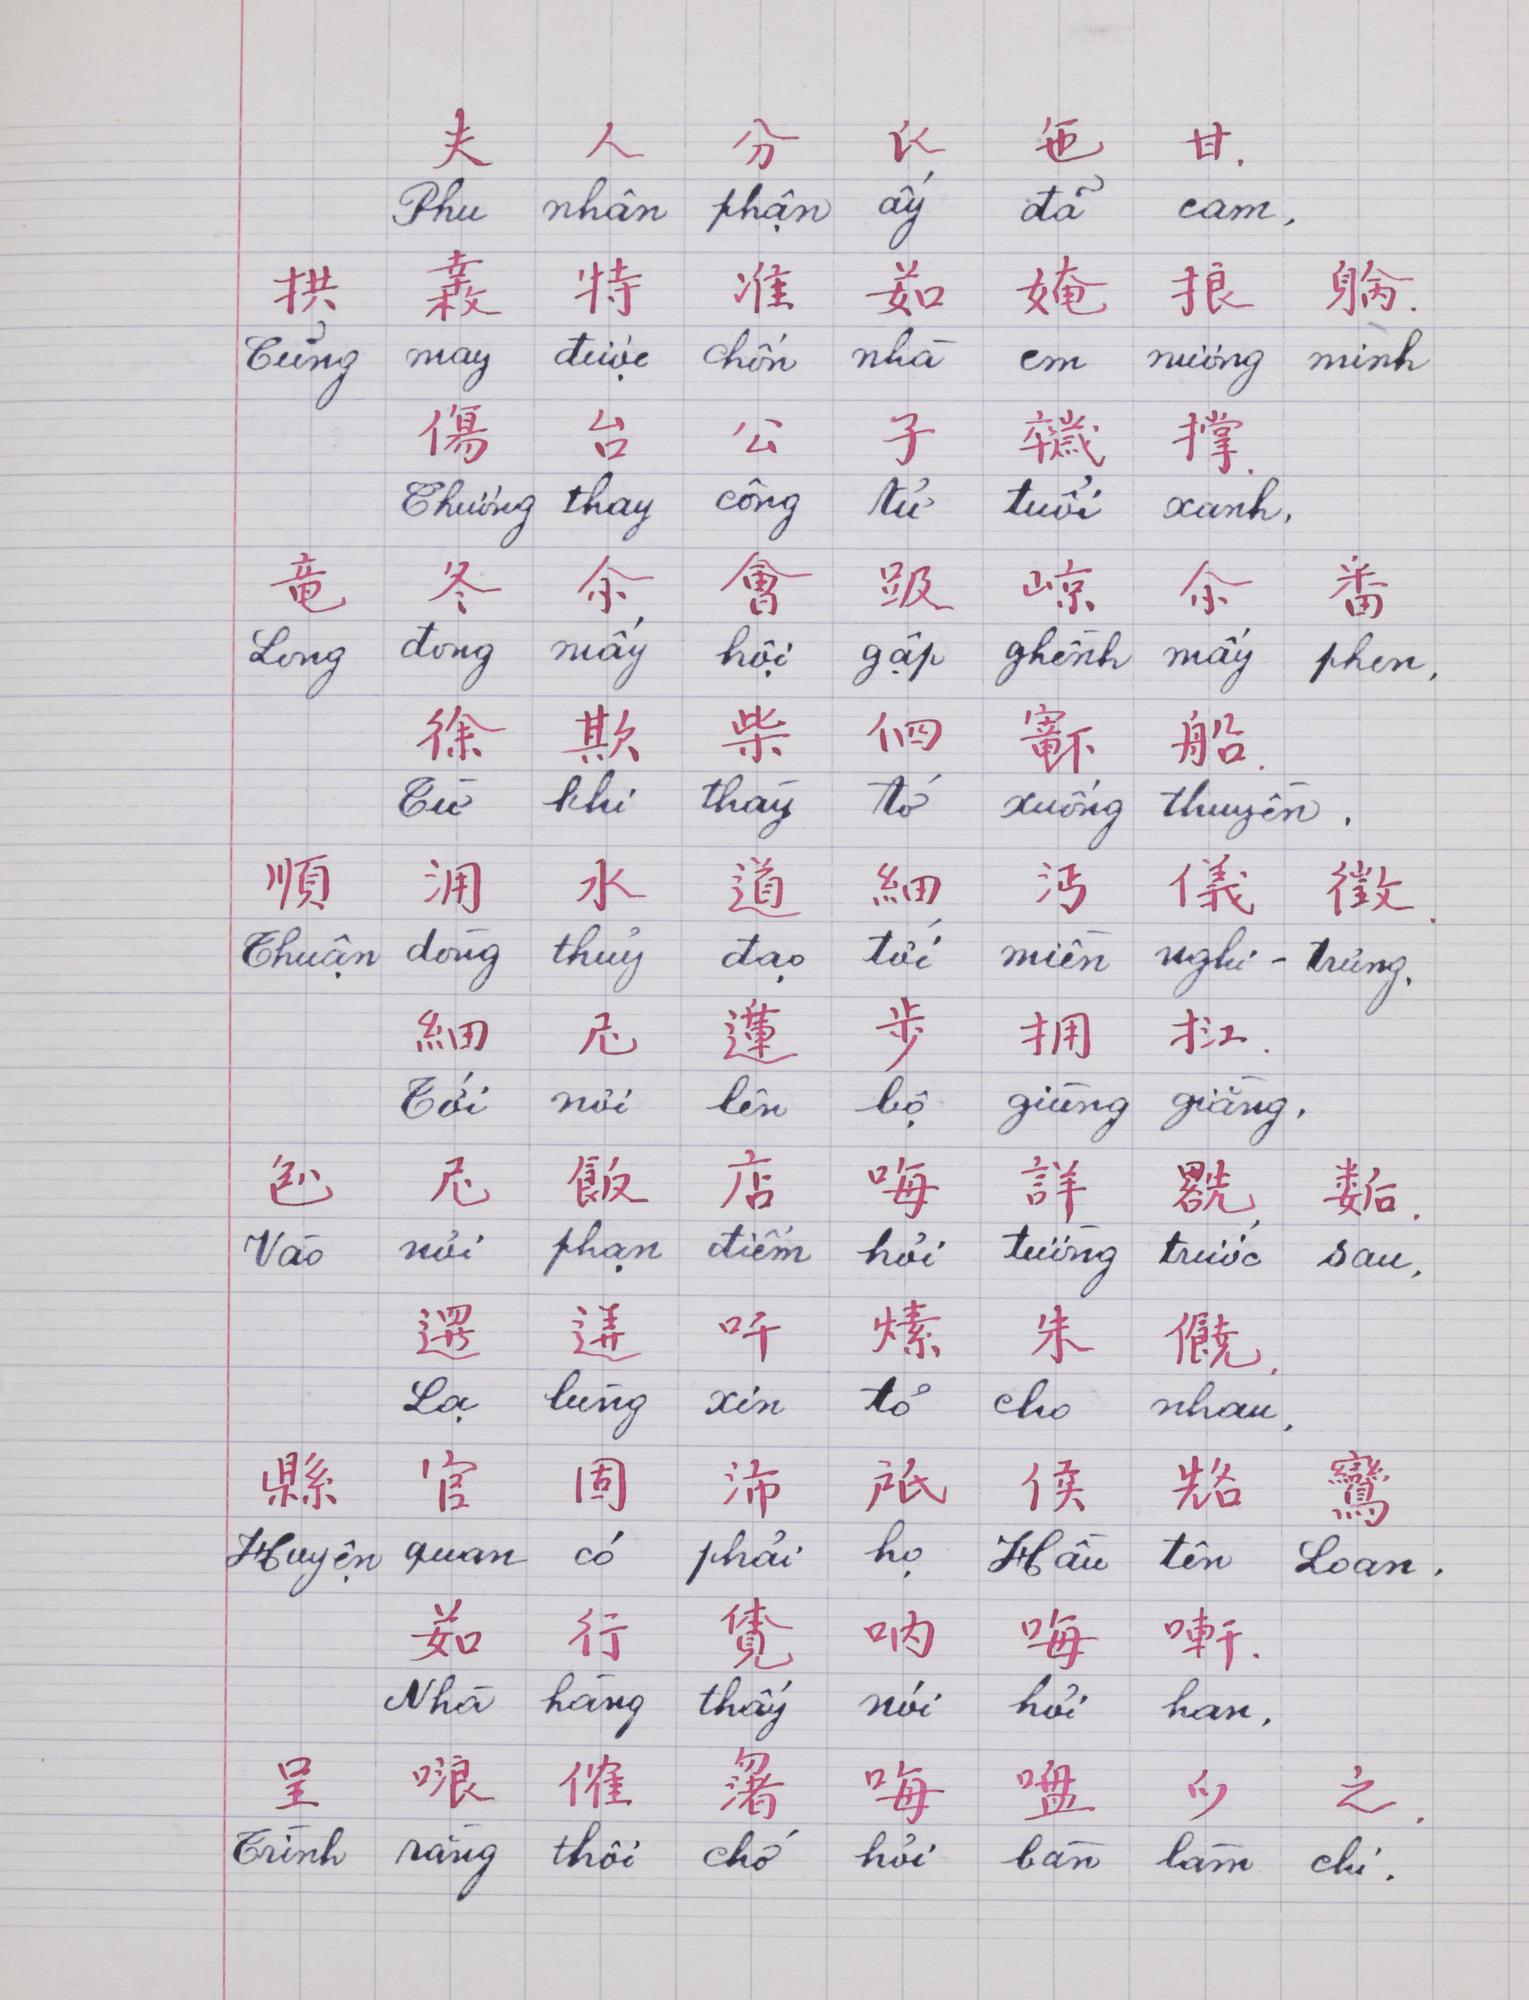 夫 人 分 𧘇 㐌 甘.
Phu nhân phận ấy đã cam,
拱 特 准 茹 媕 㨂 躺.
Cũng may được chốn nhà em nương mình
傷 台 公 子 撑.
Thương thay công tử tuổi xanh,
竜 冬 余 會 趿 𡹡 余 番
Long đong mấy hội gập ghềnh mấy phen,
徐 欺 柴 伵 船.
Từ khi thày tớ xuống thuyền.
順 𣳔 水 道 細 沔 儀 徵.
Thuận dòng thủy đạo tới miền nghi - trưng,
細 尼 蓮 步 拥 扛.
Tới nơi lên bộ giùng giằng,
𠓨 尼 飯 店 𠳨 詳 𠓀 𢖖.
Vào nơi phạn điếm hỏi tường trước sau,
逻 𨓡 吀 愫 朱 饒.
Lạ lùng xin tỏ cho nhau,
縣 官 固 沛 𢩜 侯 𠸜 鸞
Huyện quan có phải họ Hầu tên Loan.
茹 行 𧡊 吶 𠳨 𠻃.
Nhà hàng thấy nói hỏi han,
呈 哴 傕 𠳨 𠶜 之.
Trình rằng thôi chớ hỏi bàn làm chi.